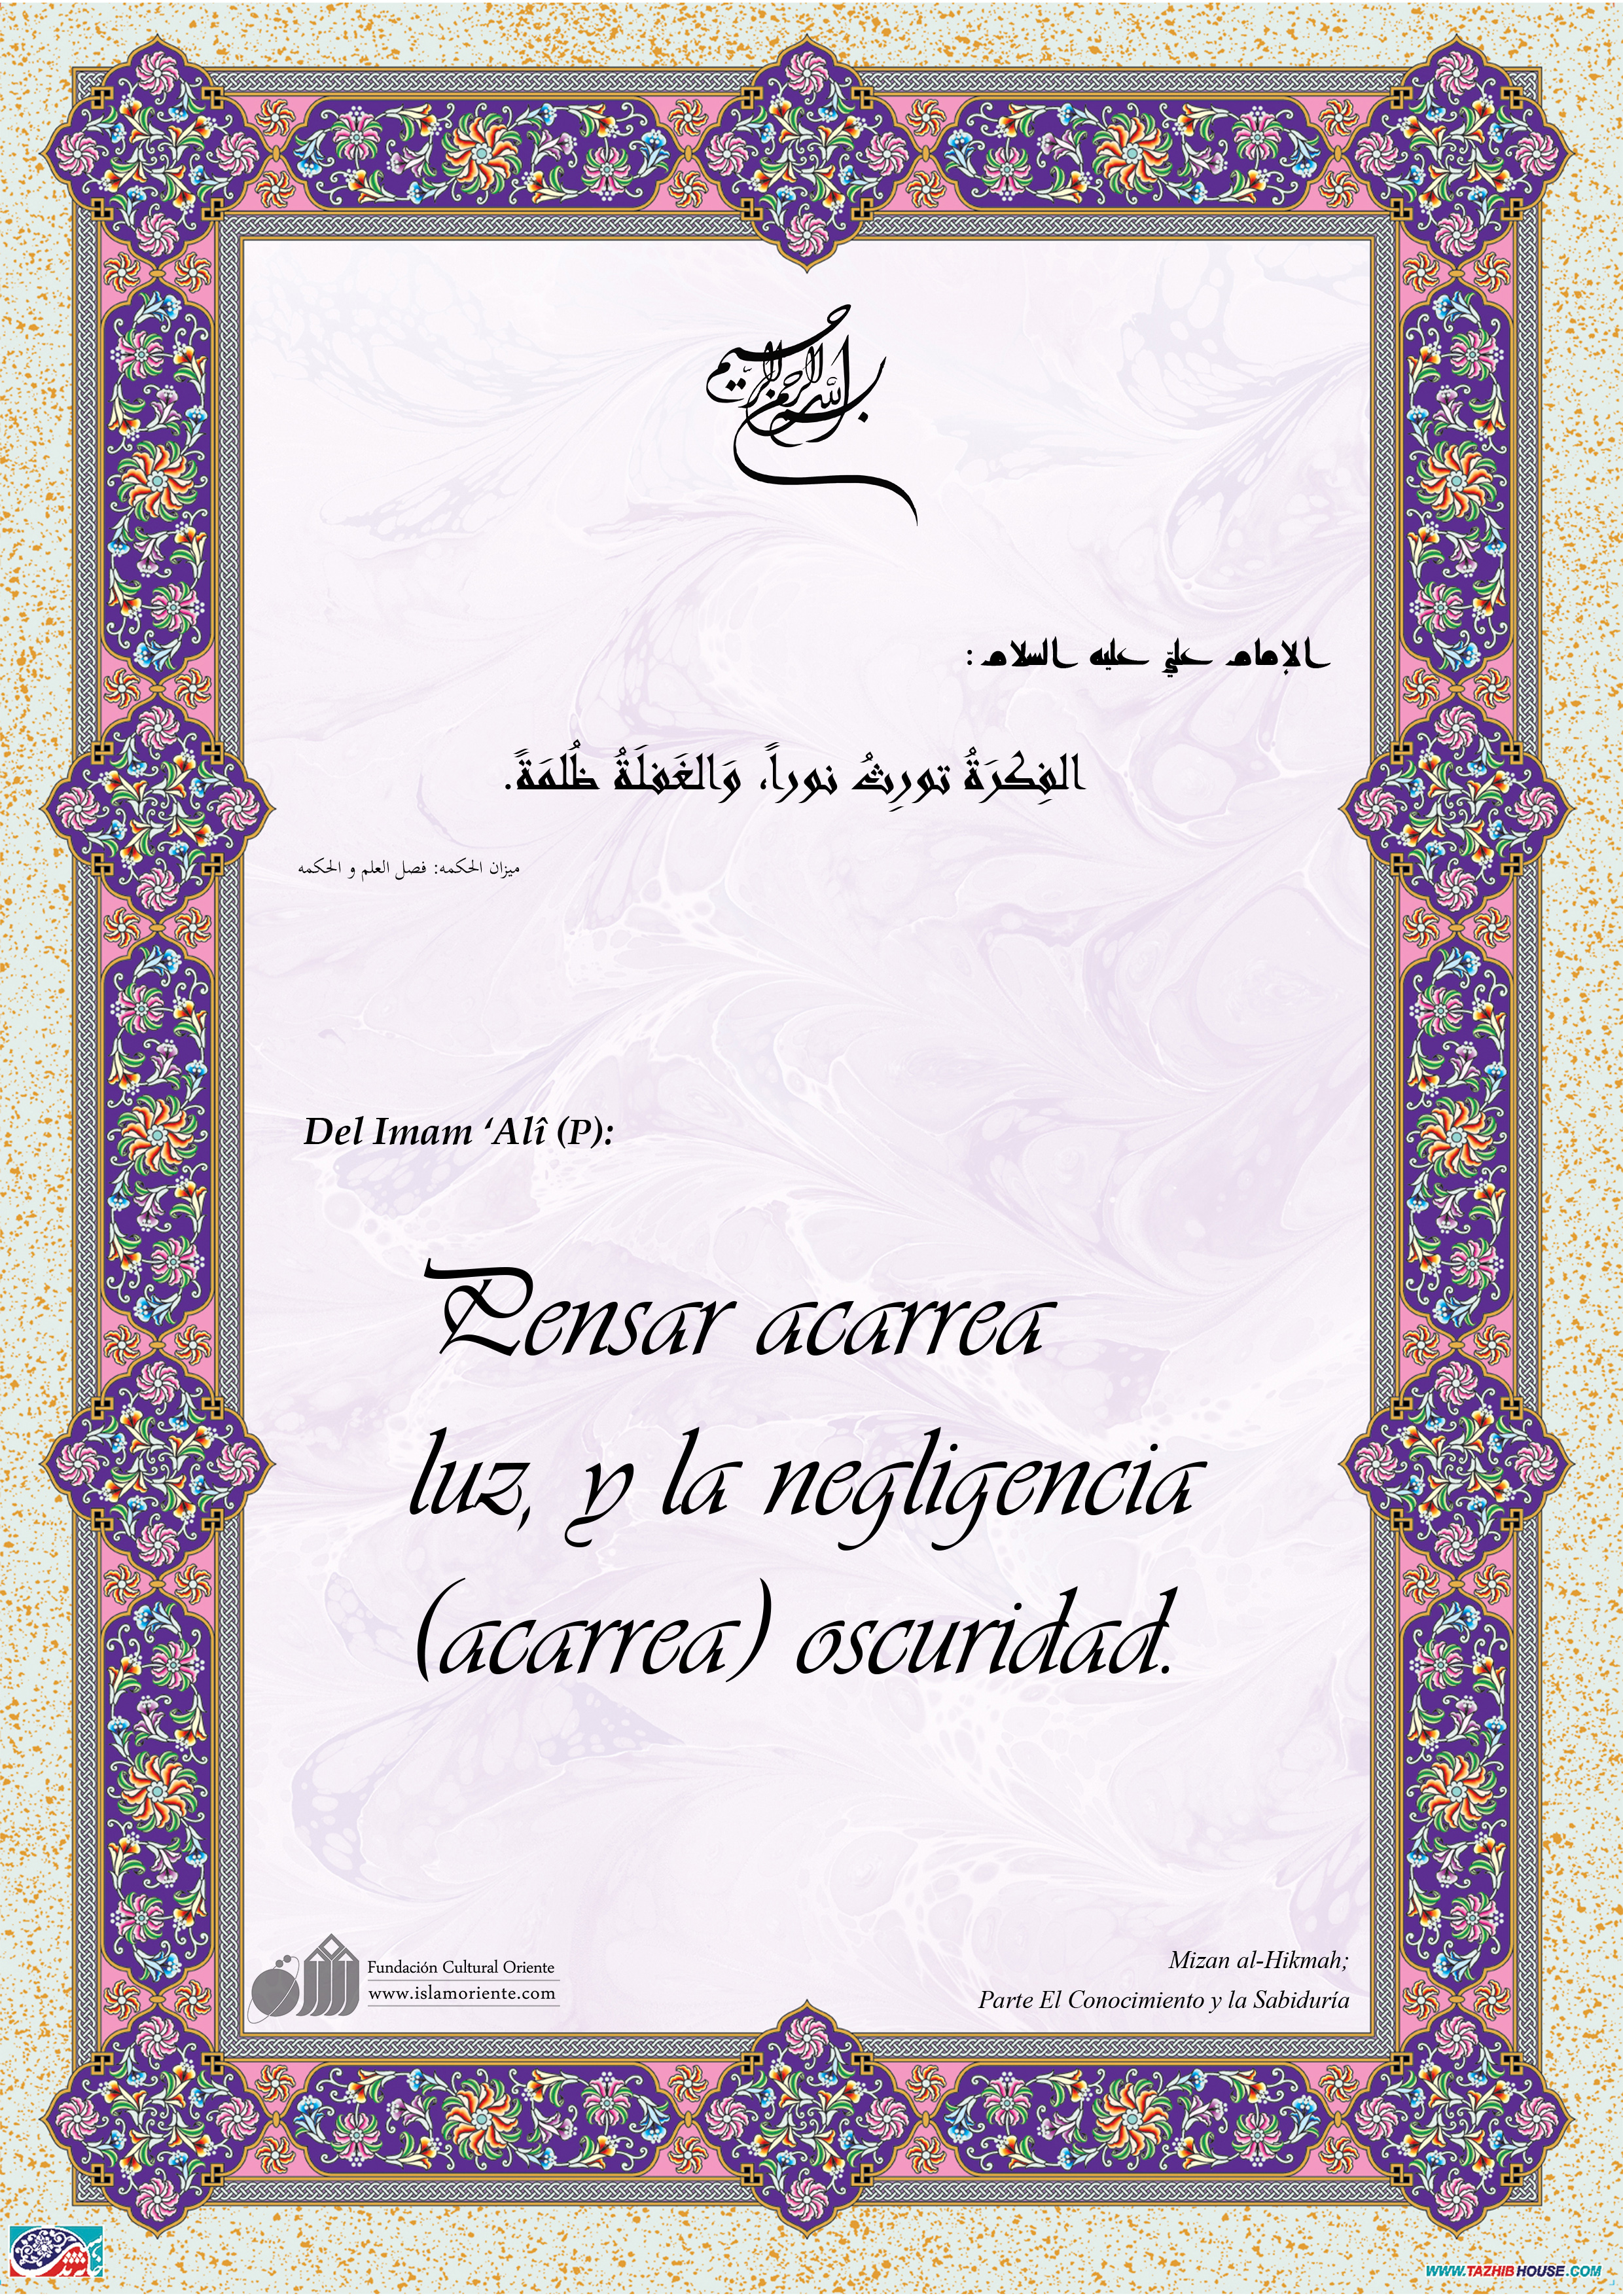 بسم الله الرحمن الرحيم
الإمام عليّ عليه السلام :
الفِكرَةُ تورِثُ نوراً، وَالغَفلَةُ ظُلمَةً.
ميزان الحكمه: فصل العلم و الحكمه
Del Imam ‘Alî (P):
Pensar acarrea
luz, y la negligencia
(acarrea) oscuridad.
Fundación Cultural Oriente
www.islamoriente.com
Mizan al-Hikmah;
Parte El Conocimiento y la Sabiduría
WWW.TAZHIBHOUSE.COM